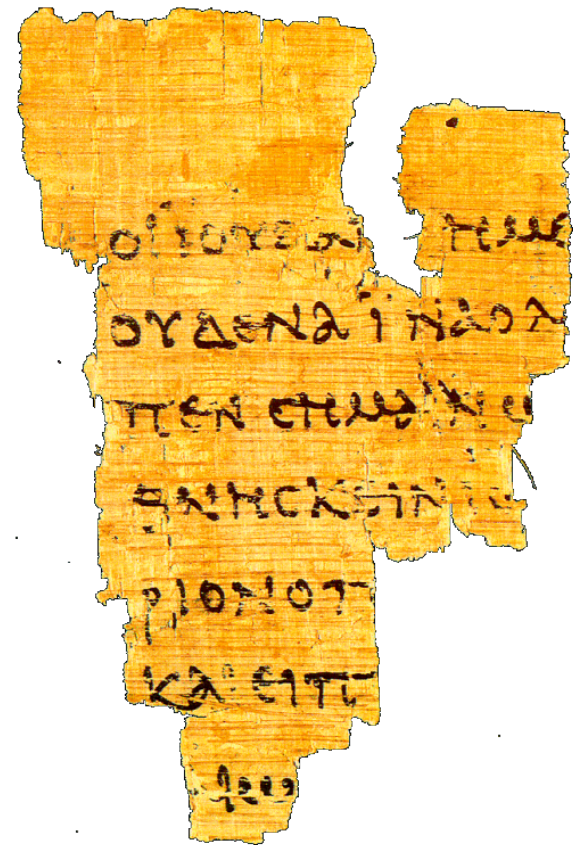 ΟΙ ΙΟΥΔΑΙ ΗΜΙ
ΟΥΔΕΝΑ ΪΝΑ Ο Λ
ΠΕΝ ΣΗΜΑΙΝΩ
ΘΝΗΣΚΕΙΝ ΙΣ
ΡΙΟΝ Ο Π
ΚΑΙ ΕΙΠ